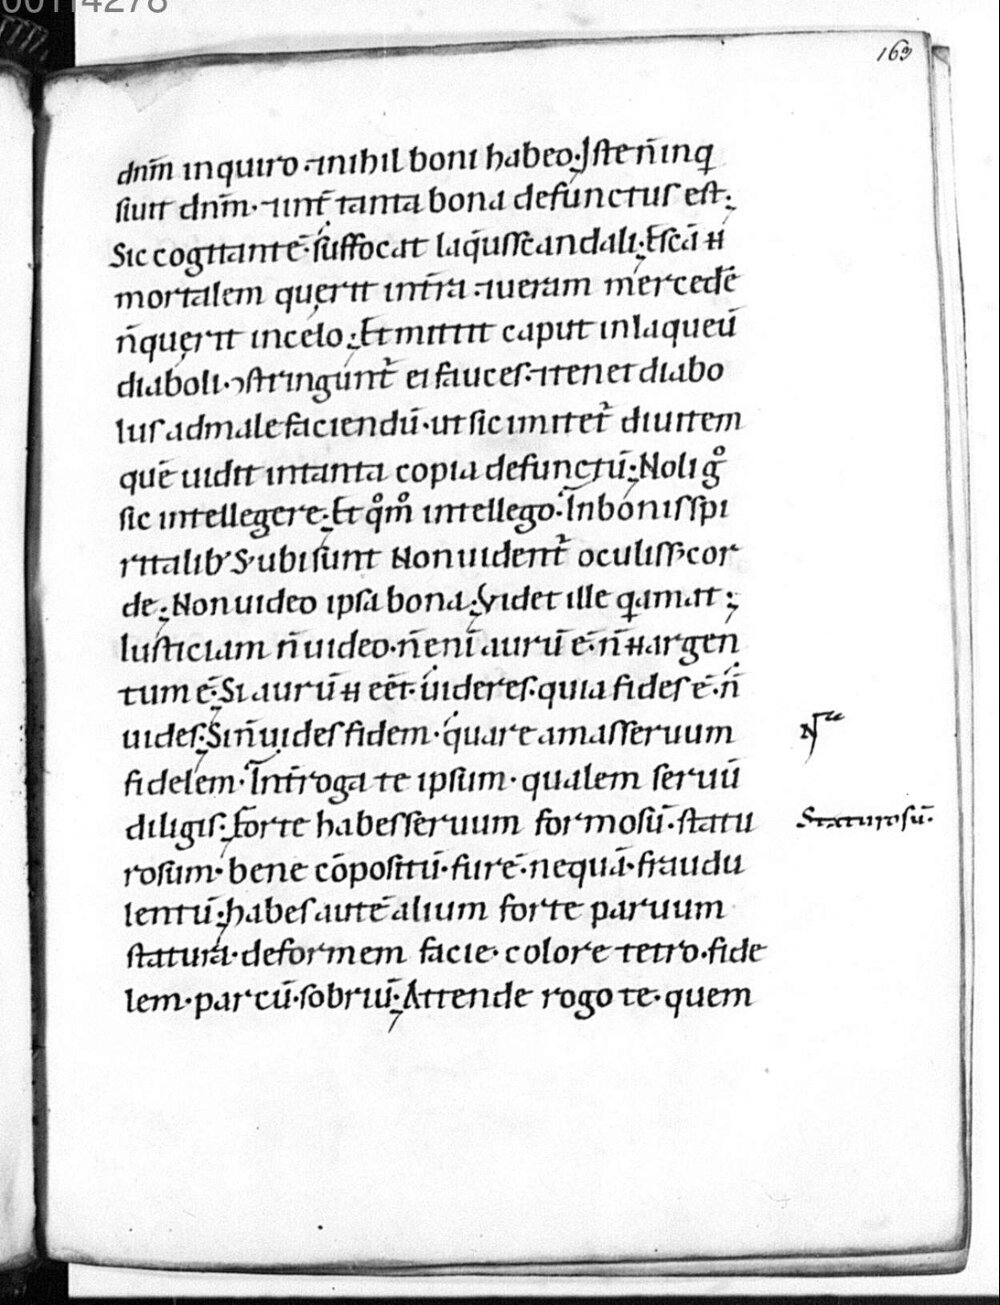 00114278
163
dnm̅ inquiro ⁊nihil boni habeo; Iste n̅ inq
siuit dnm̅· ⁊int̅ tanta bona defunctus est;
Sic cogitante̅· suffocat laq̅usscandali; Esca̅ ii
mortalem querit intr̅a ⁊ueram mercede̅
n̅querit incelo; Et mittit caput inlaqueu̅
diaboli·ↄstringunt̅ ei fauces·⁊tenet diabo
lus admalefaciendu̅·ut sic imitet̅ diuitem
que̅ uidit intanta copia defunctu̅; Noli g̊
sic intellegere; Et q̊m̊ intellego· Inbonisspi
ritalib' S· ubi sunt Non uident̅ oculiss; cor
de; Non uideo ipsa bona; Videt ille q̅amat;
Iusticiam n̅ uideo·n̅ eni̅ auru̅ e̅·n̅ii argen
tum e̅· Si auru̅ ii eet̅· uideres·quia fides e̅·n̅
uides; Sin̅ uides fidem· quare amasseruum
fidelem· Int̅roga te ipsum· qualem seruu̅
diligis; forte habesseruum formosu̅·statu
Staturosu̅·
rosum· bene co̅positu̅·fure̅·nequa̅·fraudu
lentu̅; habes aute̅ alium forte paruum
statura·deformem facie· colore tetro·fide
lem·parcu̅·sobriu̅· Attende rogo te· quem